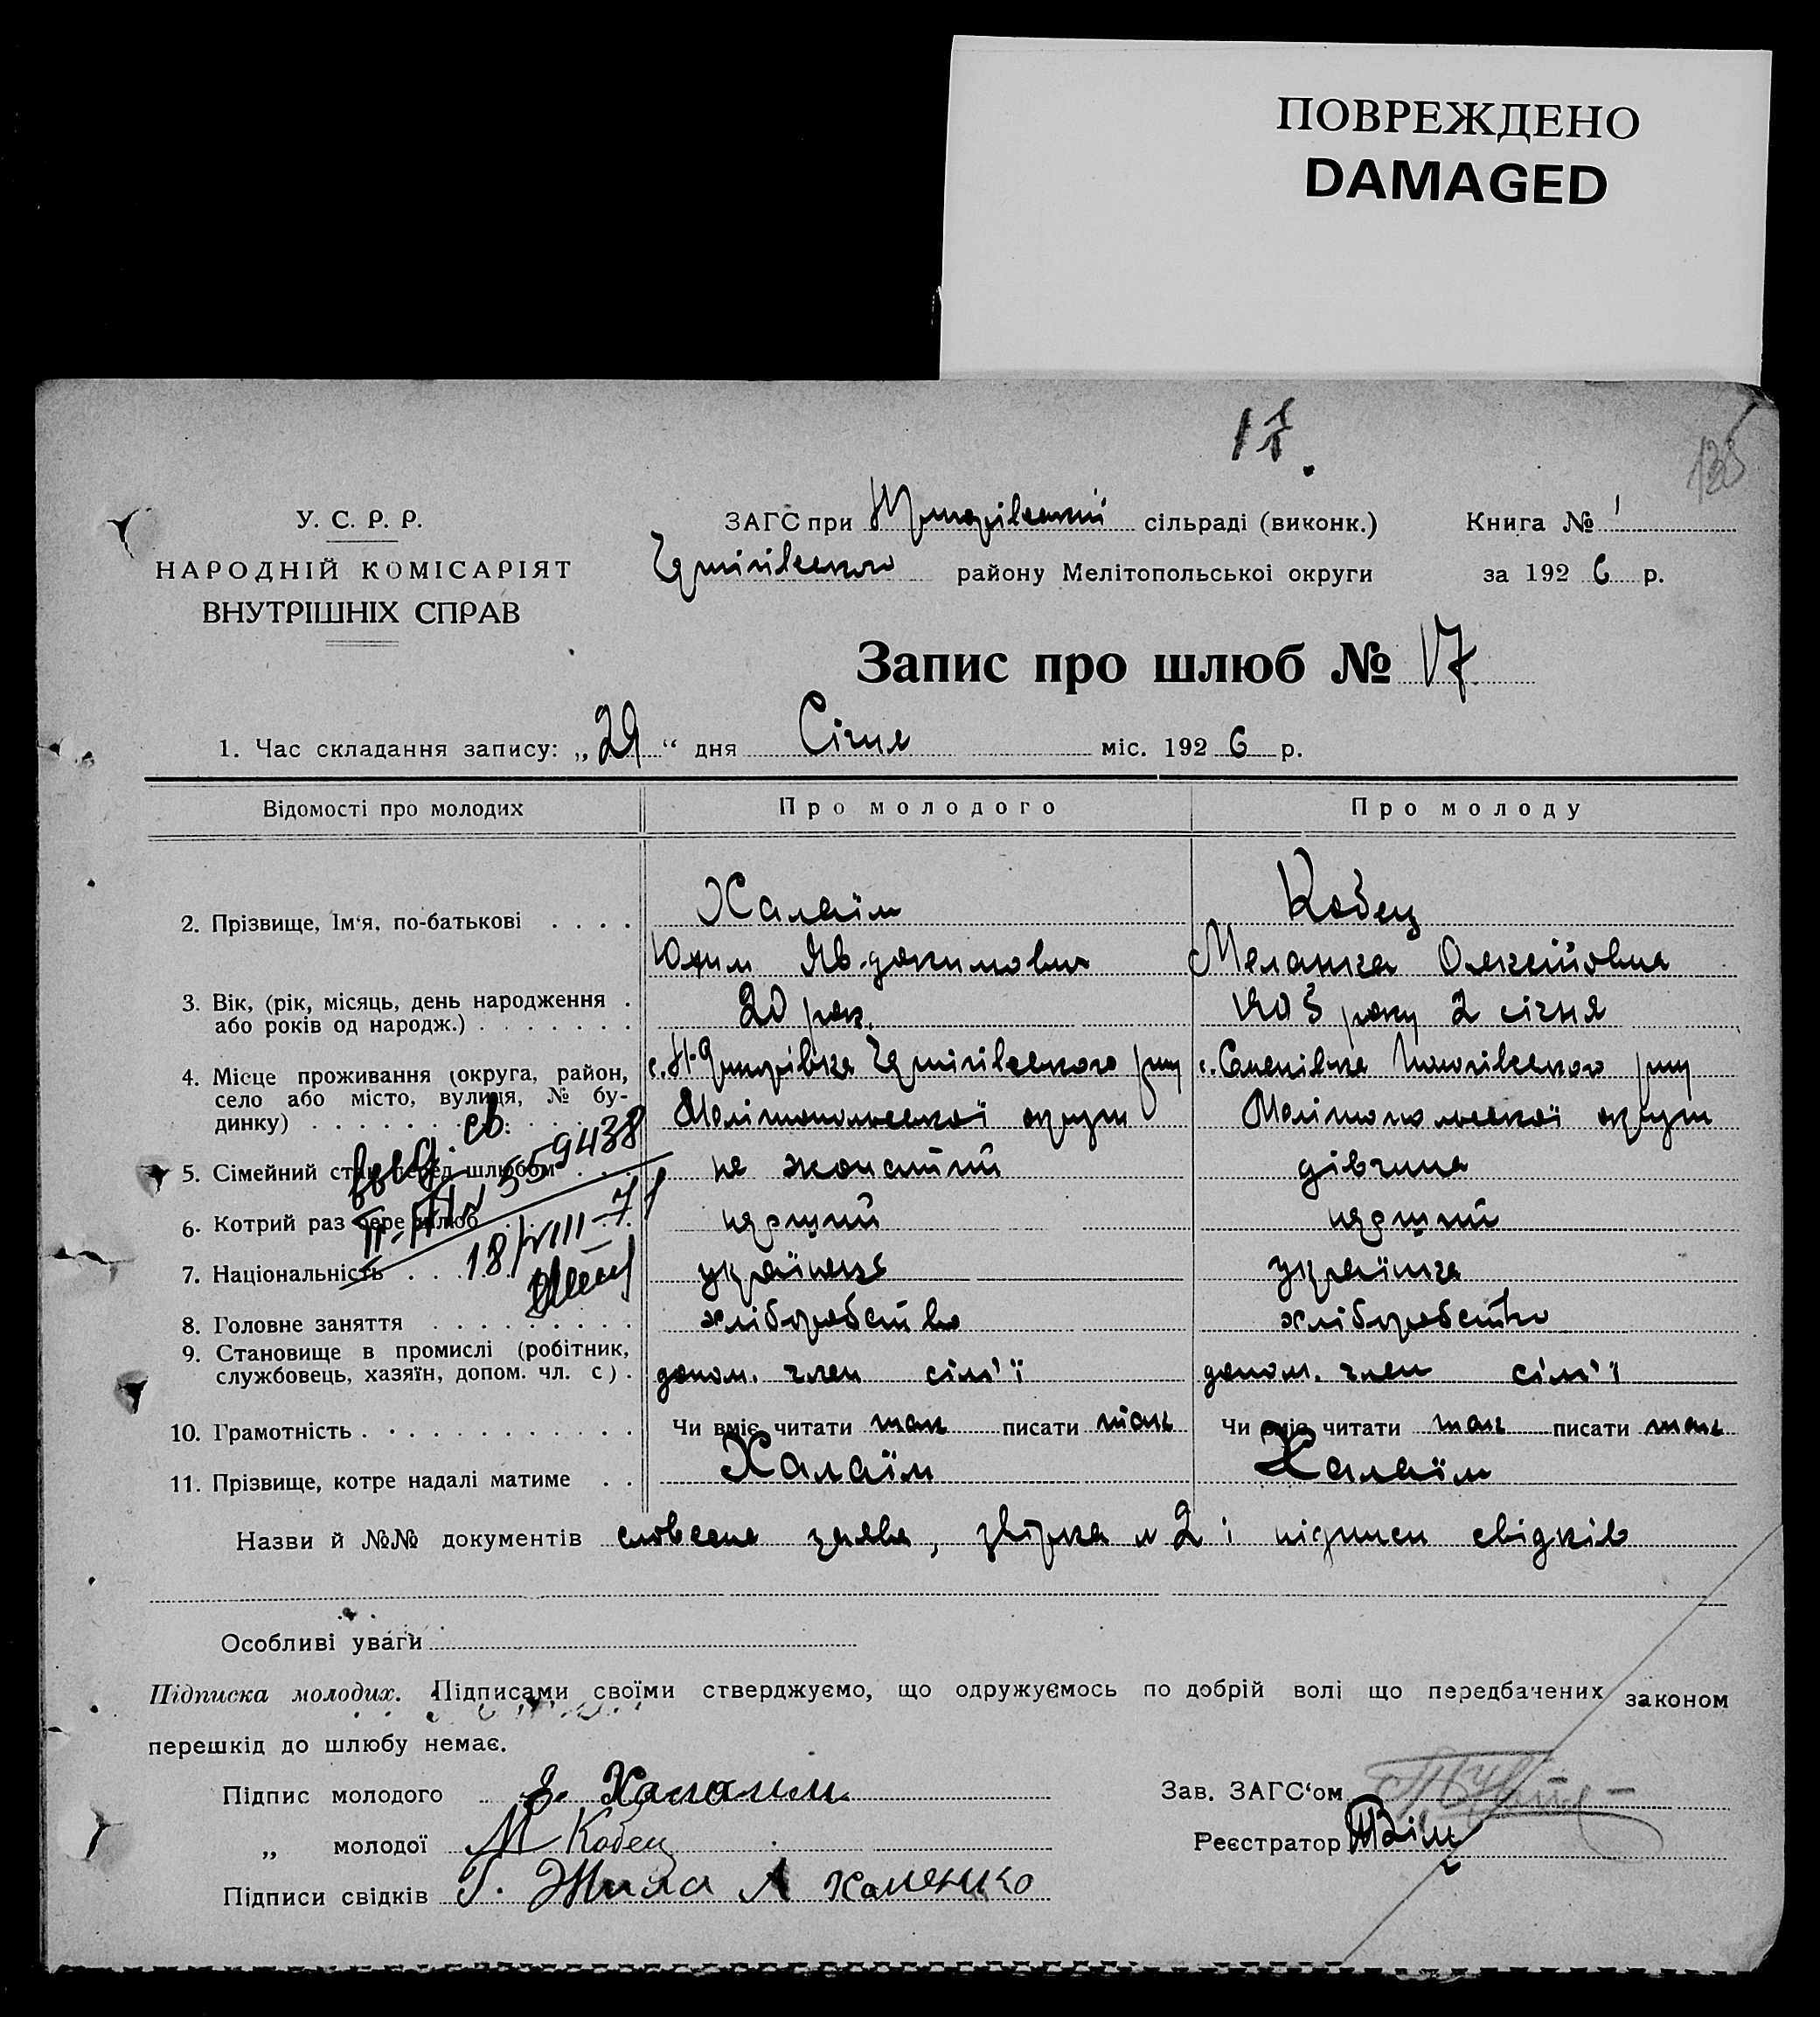 ПОВРЕЖДЕНО
DAMAGED
17.
135
У. С. Р. Р.
НАРОДНІЙ КОМІСАРІЯТ
ВНУТРІШНІХ СПРАВ
ЗАГС при сільраді (виконк.)
Книга № 1
району Мелітопольської округи
за 192 6 р.
Запис про шлюб № 17
1. Час складання запису: „29“ дня Січня міс. 192 6 р.
Відомості про молодих
Про молодого
Про молоду
2. Прізвище, Ім'я, по-батькові . . . .
Халаїм
Кобец
Юхим Явдокимович
Меланка Олексіївна
3. Вік, (рік, місяць, день народження .
або років од народж.) . . . . . . .
20 рок.
1905 року 2 січня
4. Місце проживання (округа, район,
село або місто, вулиця, № бу-
динку)
Мелітопольської округи
Мелітопольської округи
5. Сімейний стан перед шлюбом . . .
не жонатий
дівчина
559438
6. Котрий раз бере шлюб
перший
перший
18/VIII-71
7. Національність
українець
українка
8. Головне заняття . . . . . . . . .
хліборобство
хліборобство
9. Становище в промислі (робітник,
службовець, хазяїн, допом. чл. с) .
допом. член сім'ї
допом. член сім'ї
10. Грамотність . . . . . . . . . . .
Чи вміє читати так писати так
Чи вміє читати так писати так
11. Прізвище, котре надалі матиме . .
Халаїм
Халаїм
Назви й №№ документів словесна заява, звірка № 2 і підписи свідків
Особливі уваги
Підписка молодих. Підписами своїми стверджуємо, що одружуємось по добрій волі що передбачених законом
перешкід до шлюбу немає.
Підпис молодого Халаим
Зав. ЗАГС'ом
„ молодої М Кобец
Реєстратор
Підписи свідків Г. Жила А